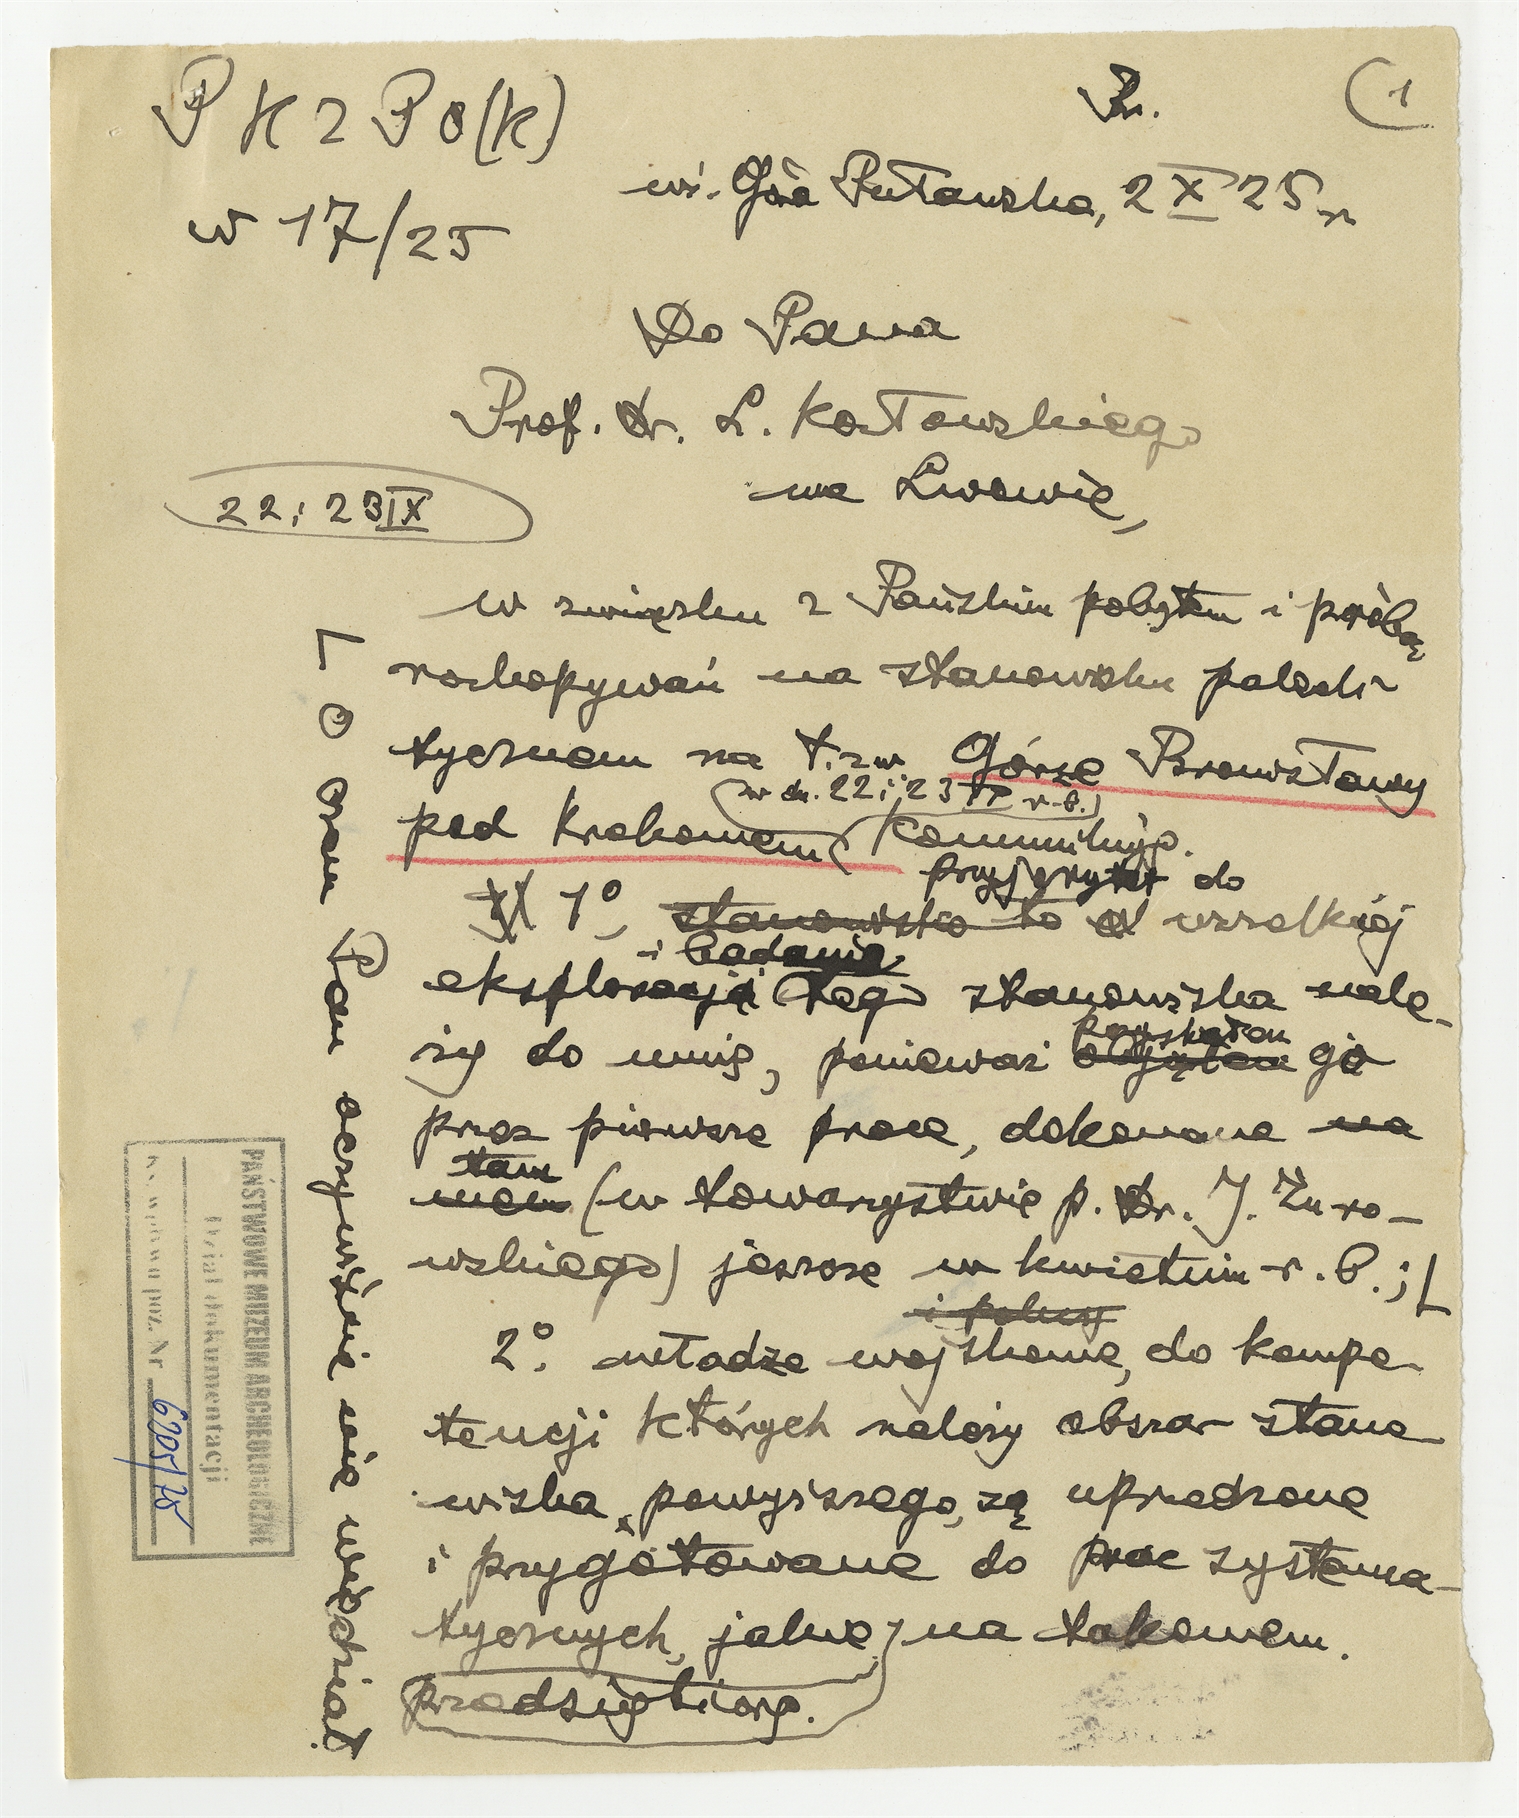 P K Z P O (K)
w 17/25
(1
wś. Góra Puławska, 2 X 25 r
Do Pana
Prof. Dr. L. Kozłowskiego
we Lwowie,
22 i 23 IX
w związku z Pańskim pobytem i próbą
rozkopywań na stanowisku paleoli-
tycznem na t. zw. Górze Bronisławy
(w dn. 22 i 23 IX r. b.)
pod Krakowem komunikuję.
1º, stanowisko to
przyjęrytet do
wszelkiej
i badania
eksploracji tego stanowiska nale-
ży do mnie, ponieważ objąłem go
pozyskałem
przez pierwsze prace, dokonane na
tam
niem (w towarzystwie p. Dr. J. Żuro-
wskiego) jeszcze w kwietniu r. b.;
i policy
2º. władze wojskowe, do kompe-
tencji których należy obszar stano-
wiska powyższego, są uprzedzone
i przygotowane do prac systema-
tycznych, jakie na takowem.
przedsięбiorę.
o czem Pan oczywiście nie wiedział
PAŃSTWOWE MUZEUM ARCHEOLOGICZNE
Dział dokumentacji
Ks. wpływu poz. Nr 6205/25